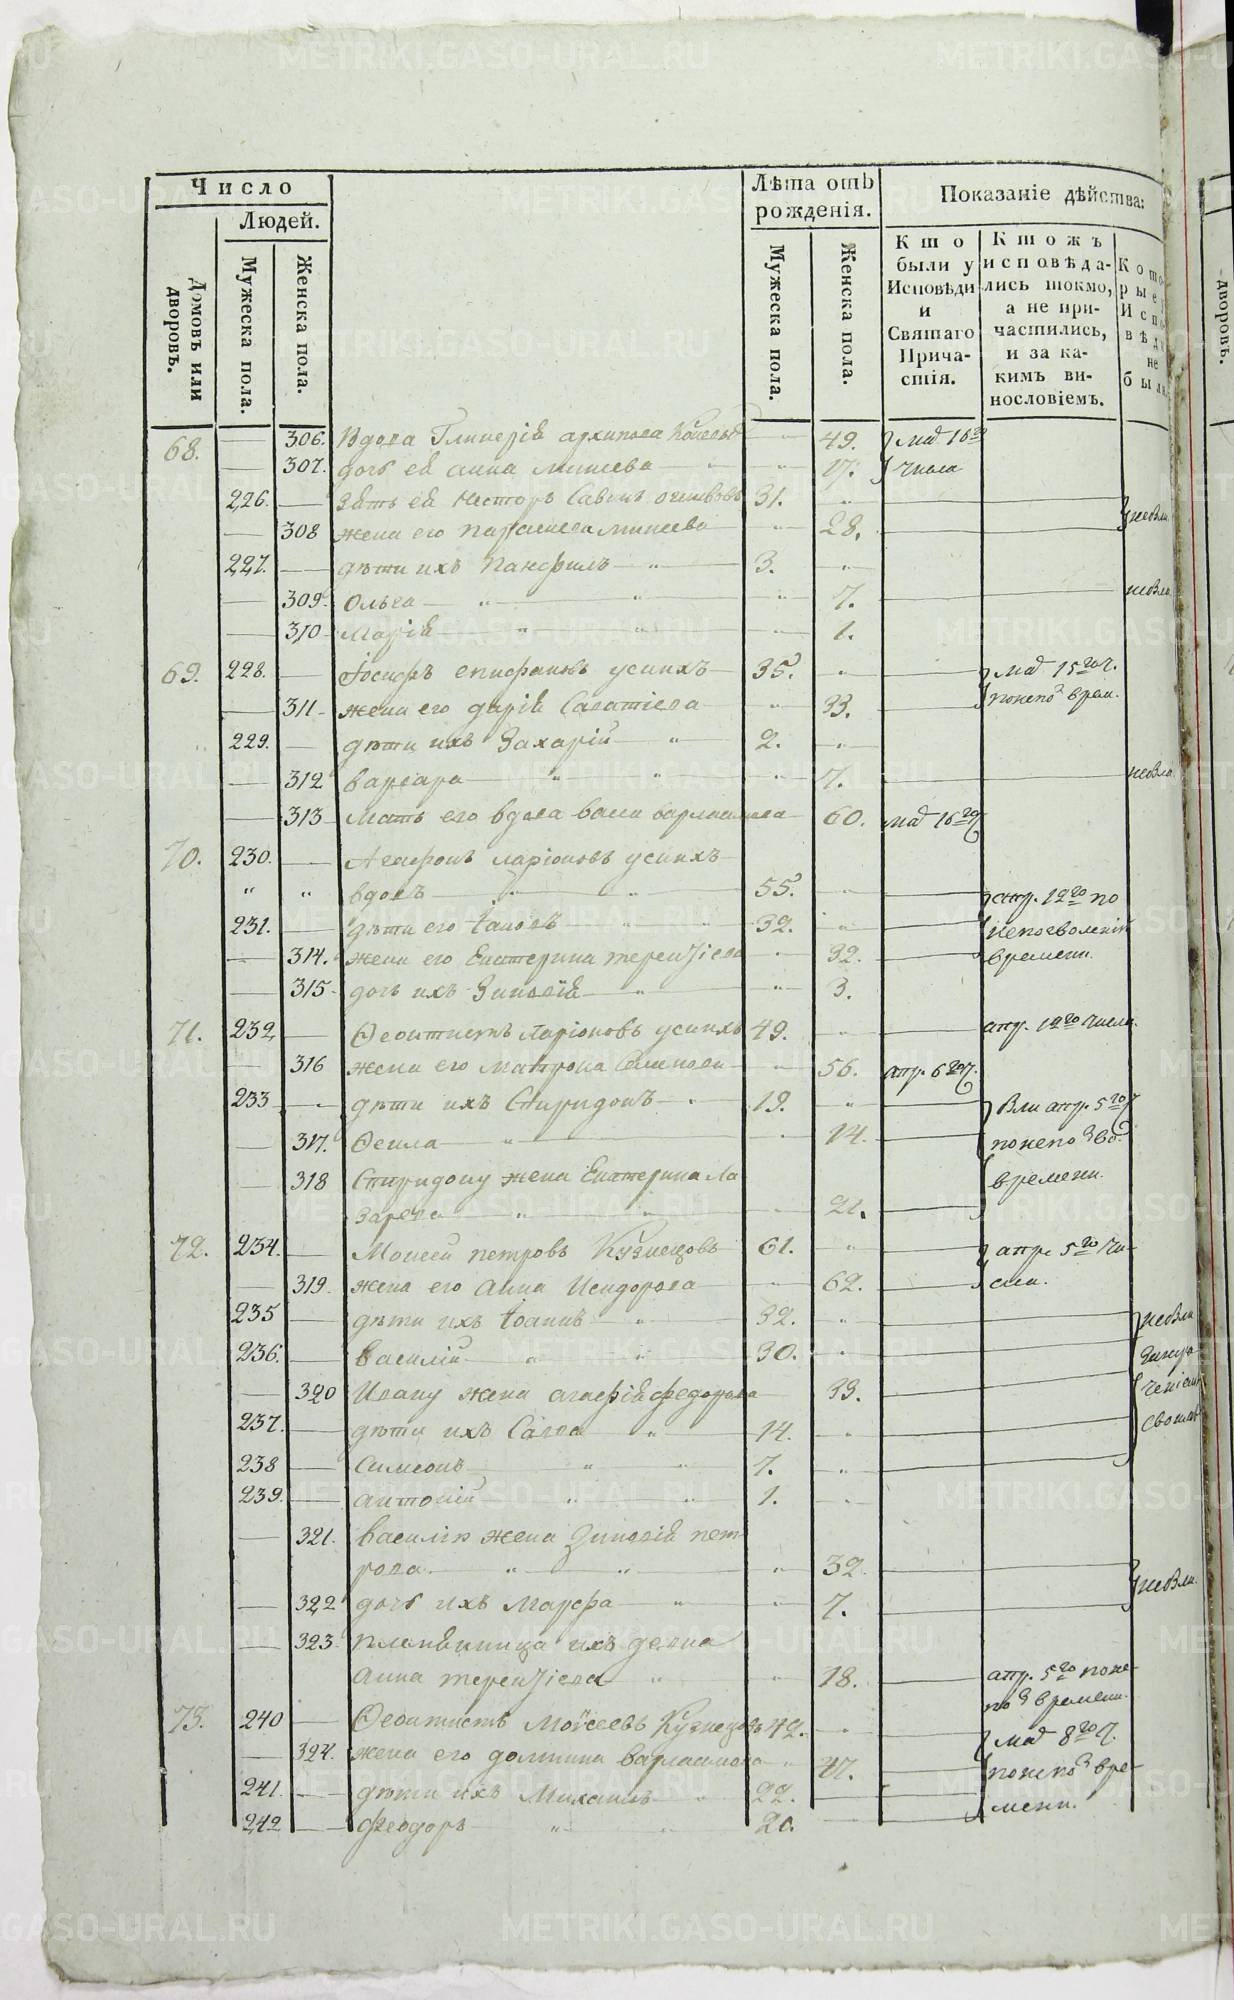 Число
Людей.
Домовъ или дворовъ.
Мужеска пола.
Женска пола.
Лѣта отъ рожденія.
Мужеска пола.
Женска пола.
Показаніе дѣйства:
Кто были у Исповѣди и Святаго Причастія.
Ктожъ исповѣдались токмо, а не причастились, и за какимъ винословіемъ.
Которые у Исповѣди не были.
дворовъ.
68. 306. Вдова Гликерія архипова 49. маія 16го
307. дочь ея анна минеева 17. числа
226. Зять ея Несторъ Савинъ 31.
308 жена его Параскева минеева 28. не были
227. дѣти ихъ Панфилъ 3.
309. Ольга 7. не была
310 Марія 1.
69. 228. Іосифъ епифановъ усынхъ 35. маія 15го ч.
311 жена его дарія Саватіева 33. по непод врем.
229. дѣти ихъ Захарій 2.
312 варвара 7. не была
313 Мать его вдова васса варлаамова 60. маія 16го ч
70. 230. Агафонъ ларіоновъ усынхъ
вдовъ 55. апр. 12го по
231. дѣти его Іаковъ 32.
314. жена его Екатерина терентіева 32. времени.
315 дочь ихъ Зиновія 3.
71. 232 Ѳеоктистъ Ларіоновъ усынхъ 49. апр. 12го числа.
316 жена его матрона 56. апр. 6го ч.
233 дѣти ихъ Спиридонъ 19. были апр. 5го ч
317. Ѳекла 14. по непод
318 Спиридону жена Екатерина Ла времени.
зарева 21.
72. 234. Моисей петровъ Кузнецовъ 61. апр. 5го чи-
319. жена его Анна Исидорова 62. сла.
235 дѣти ихъ Іоаннъ 32. не были
236. василій 30.
320 Ивану жена агафія федорова 33.
237. дѣти ихъ Савва 14.
238 Симеонъ 7.
239. антоній 1.
321. василію жена Зиновія пет-
рова. 32
322 дочь ихъ Марфа 7. не были.
323. племянница ихъ девка
Анна терентіева 18. апр. 5го по не-
под времени.
73. 240 Ѳеоктистъ Моѵсеевъ Кузнецовъ 42. маія 8го ч.
324. жена его домнина варлаамова 47. по непод вре-
241. дѣти ихъ Михаилъ 22. мени.
242 Ѳеодоръ 20.
METRIKI.GASO-URAL.RU